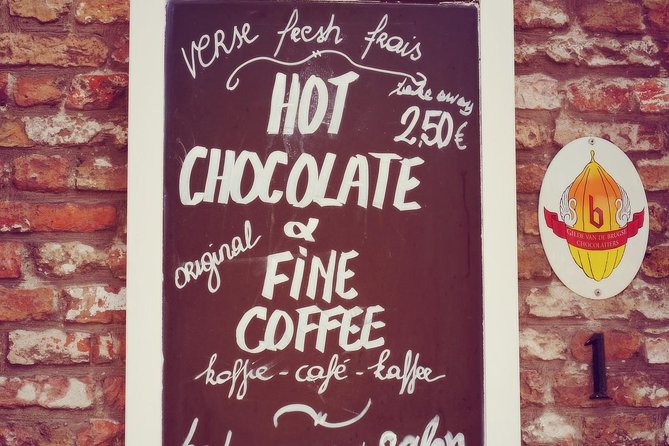 verse fresh frais
HOT
take away
2,50€
CHOCOLATE
&
original
FINE
COFFEE
koffie - café - kaffee
salon
b
GILDE VAN DE BRUGSE
CHOCOLATIERS
1